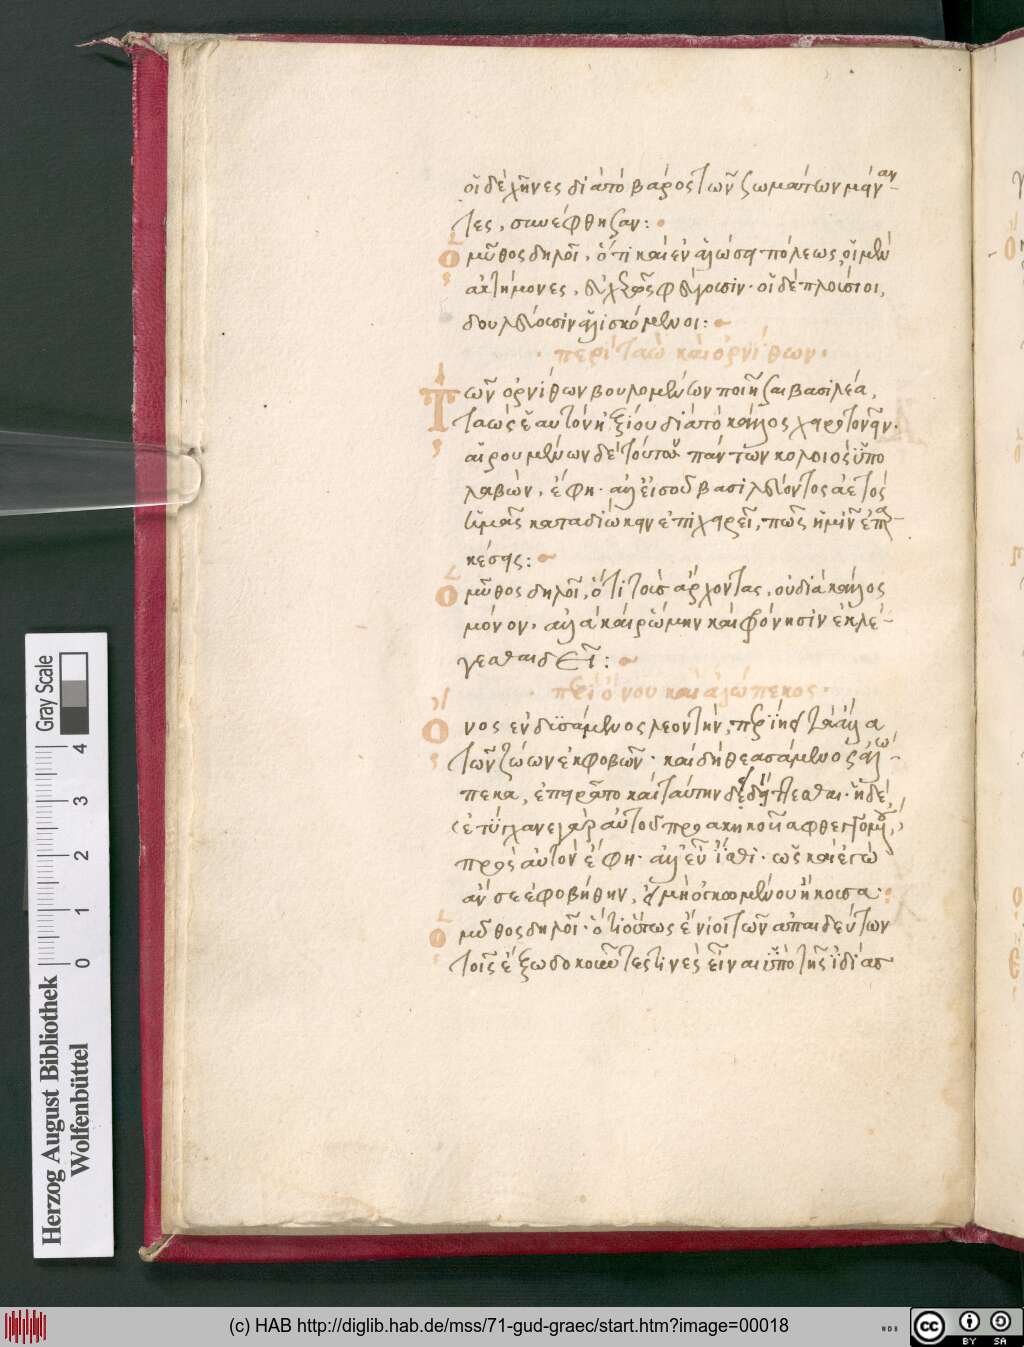 οἱ δὲ χῆνες διὰ τὸ βάρος τῶν σωμάτων μείναν-
τες, συνελήφθησαν:
ὁ μῦθος δηλοῖ, ὅτι καὶ ἐν ἁλώσει πόλεως, οἱ μὲν
ἀκτήμονες, εὐχερῶς φεύγουσιν· οἱ δὲ πλούσιοι,
δουλεύουσιν ἁλισκόμενοι:
περὶ ταὼ καὶ ὀρνίθων·
Τῶν ὀρνίθων βουλομένων ποιῆσαι βασιλέα,
ταὼς ἑαυτὸν ἠξίου διὰ τὸ κάλλος χειροτονεῖν·
αἱρουμένων δὲ τοῦτον πάντων κολοιὸς ὑπο
λαβὼν, ἔφη· ἀλλ' εἰ σοῦ βασιλεύοντος ἀετὸς
ἡμᾶς καταδιώκειν ἐπιχειρεῖ, πῶς ἡμῖν ἐπαρ-
κέσεις:
ὁ μῦθος δηλοῖ, ὅτι τοὺς ἄρχοντας, οὐ διὰ κάλλος
μόνον, ἀλλὰ καὶ ῥώμην καὶ φρόνησιν ἐκλέ-
γεσθαι δεῖ:
περὶ ὄνου καὶ ἀλώπεκος·
Ὄνος ἐνδυσάμενος λεοντῆν, περιῄει τἆλλα
τῶν ζώων ἐκφοβῶν· καὶ δὴ θεασάμενος ἀλώ-
πεκα, ἐπειρᾶτο καὶ ταύτην δεδίττεσθαι· ἡ δὲ,
(ἐτύγχανε γὰρ αὐτοῦ προακηκουῖα φθεγξαμένου,)
πρὸς αὐτὸν ἔφη· ἀλλ' εὖ ἴσθι· ὡς καὶ ἐγὼ
ἄν σε ἐφοβήθην, εἰ μὴ ὀγκωμένου ἤκουσα·
ὁ μῦθος δηλοῖ· ὅτι οὕτως ἔνιοι τῶν ἀπαιδεύτων
τοῖς ἔξω δοκοῦντες τινὲς εἶναι ὑπὸ τῆς ἰδίας
Herzog August Bibliothek
Wolfenbüttel
Gray Scale
0 1 2 3 4
(c) HAB http://diglib.hab.de/mss/71-gud-graec/start.htm?image=00018
WDB
cc BY SA